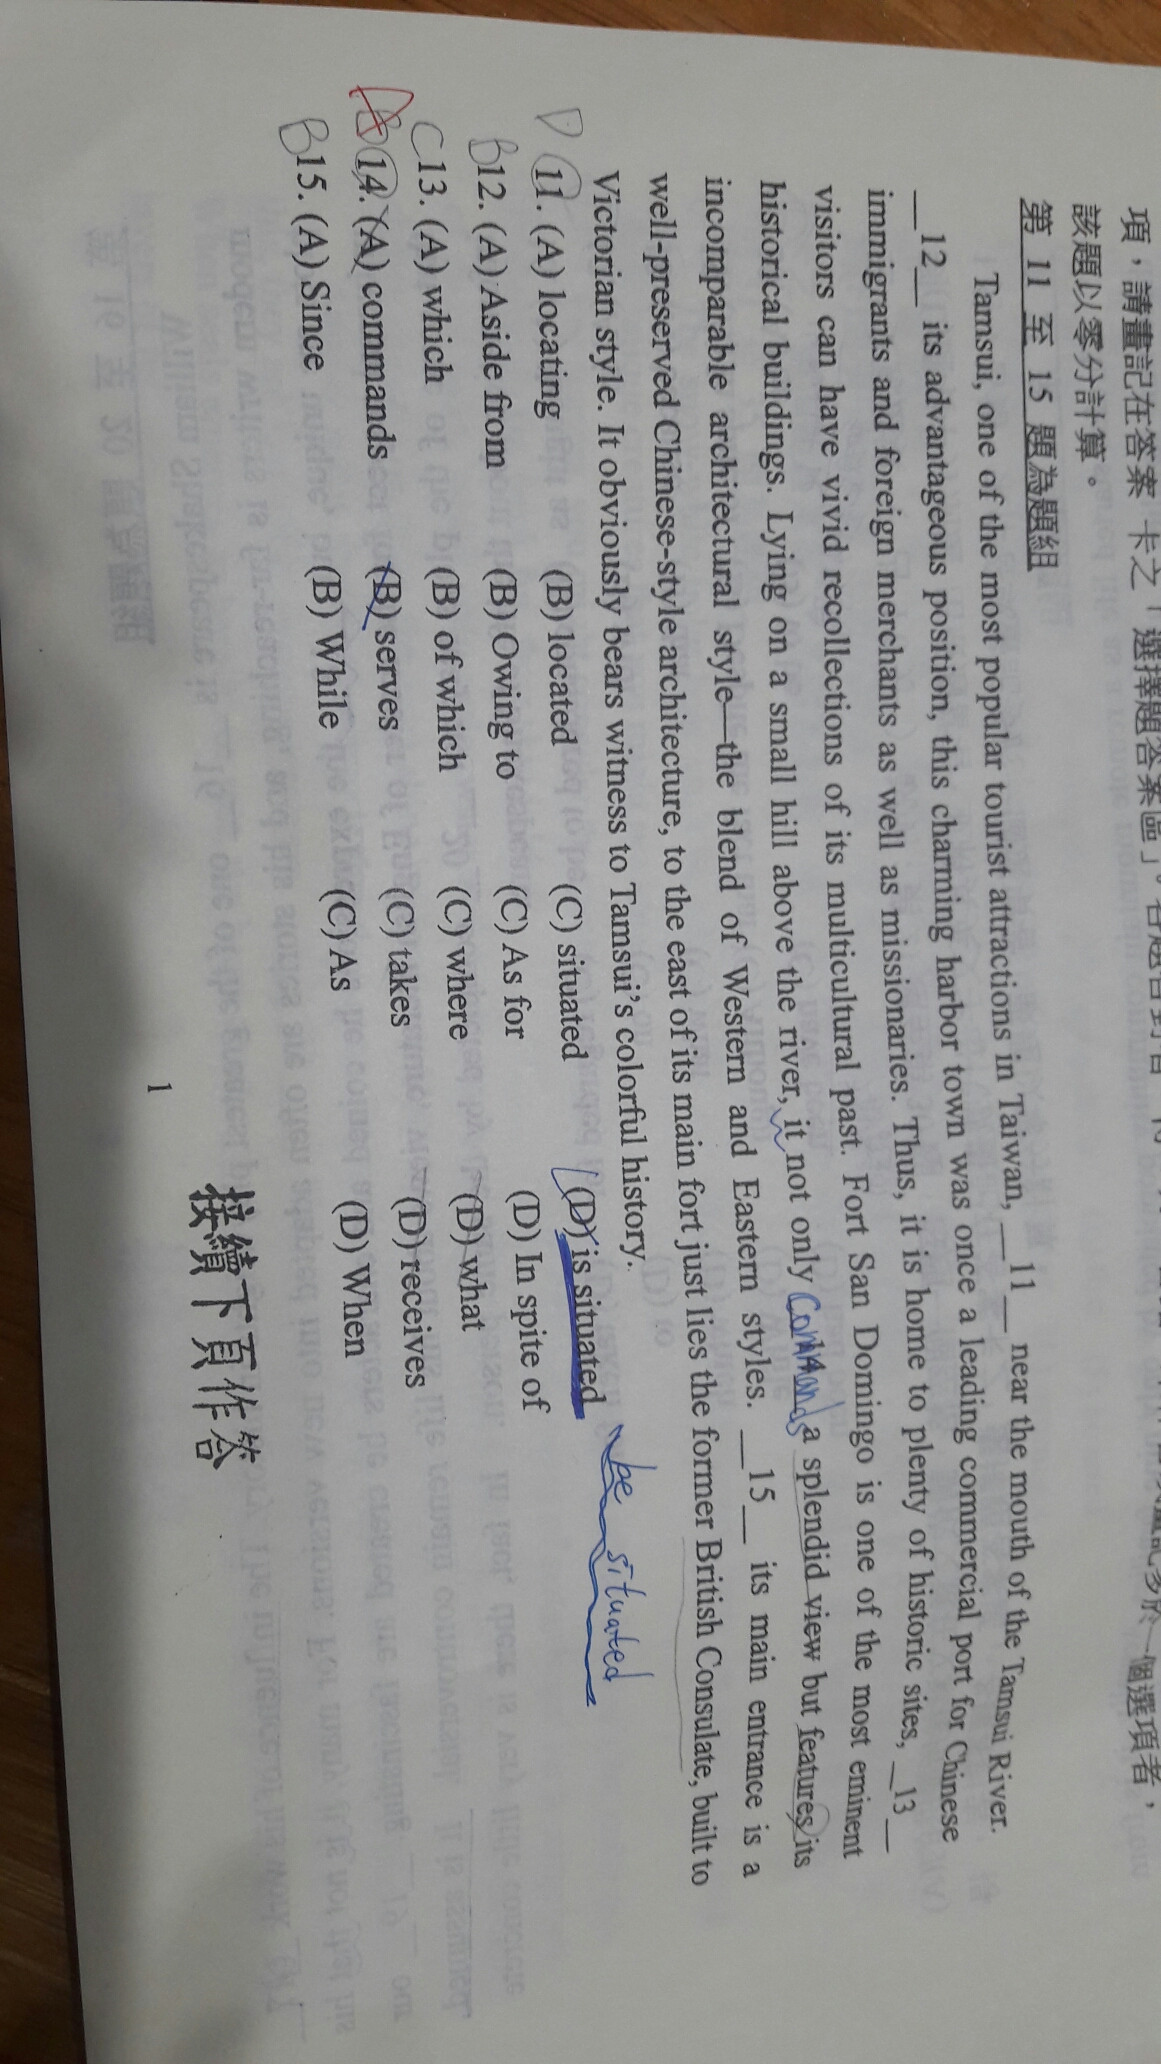 項，請畫記在答案 卡之「選擇題答案區」。各題答對者
個選項者，
該題以零分計算。
第 11 至 15 題為題組
Tamsui, one of the most popular tourist attractions in Taiwan, __11__ near the mouth of the Tamsui River.
__12__ its advantageous position, this charming harbor town was once a leading commercial port for Chinese
immigrants and foreign merchants as well as missionaries. Thus, it is home to plenty of historic sites, __13__
visitors can have vivid recollections of its multicultural past. Fort San Domingo is one of the most eminent
historical buildings. Lying on a small hill above the river, it not only Commands a splendid view but features its
incomparable architectural style—the blend of Western and Eastern styles. __15__ its main entrance is a
well-preserved Chinese-style architecture, to the east of its main fort just lies the former British Consulate, built to
Victorian style. It obviously bears witness to Tamsui's colorful history.
D 11. (A) locating (B) located (C) situated (D) is situated be situated
B 12. (A) Aside from (B) Owing to (C) As for (D) In spite of
C 13. (A) which (B) of which (C) where (D) what
A 14. (A) commands (B) serves (C) takes (D) receives
B 15. (A) Since (B) While (C) As (D) When
1
接續下頁作答